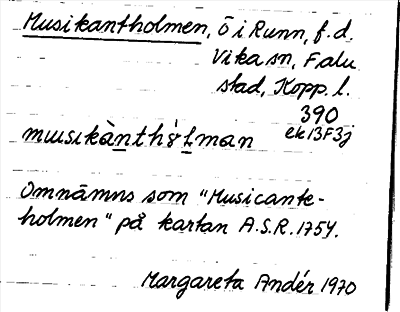 Musikantholmen, ö i Runn, f.d.
Vika sn, Falu
stad, Kopp. l.
390
ek 13F3j
musikànthɷ̀lman
Omnämns som "Musicante-
holmen" på kartan A.S.R. 1754.
Margareta Andér 1970